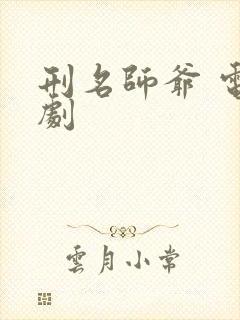 刑名師爺 電
劇
雲月小常